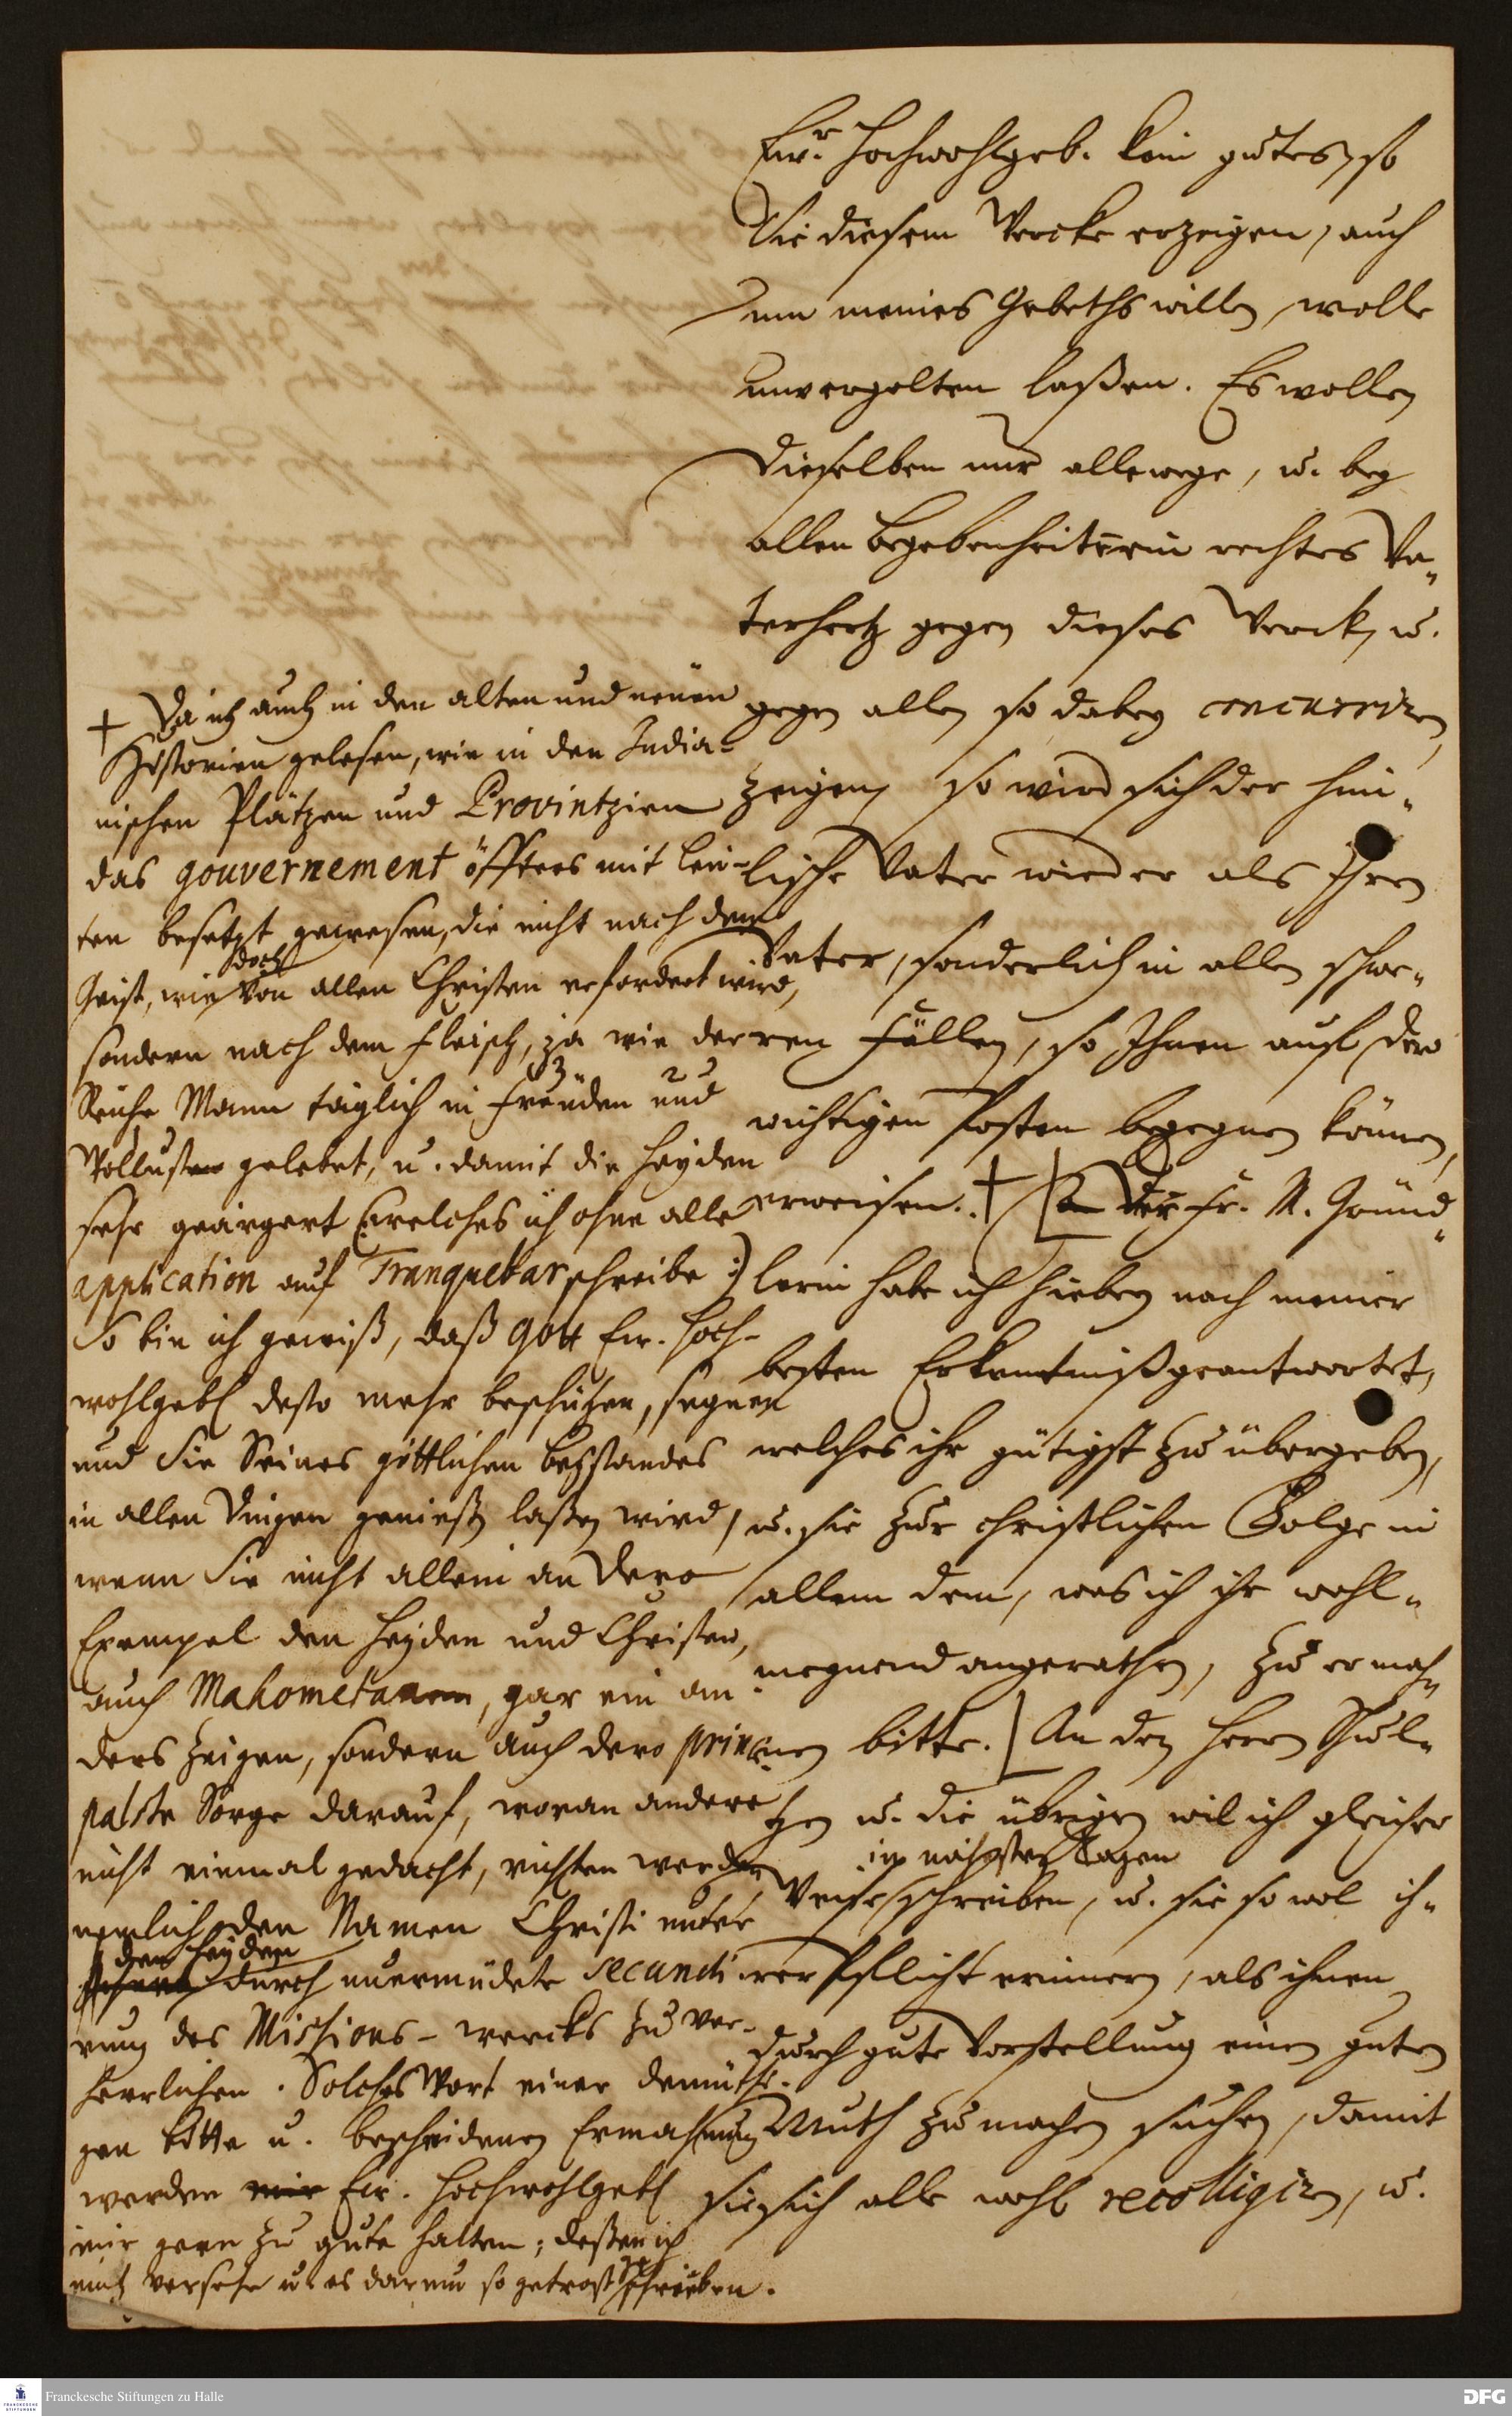 Ew. Hochwohlgeb. kein gutes, so
Sie diesem Wercke erzeigen, auch
um meines Gebeths willen, wolle
unvergolten laßen. Es wollen
dieselben nur allewege, u. bey
allen Begebenheiten ein rechtes Va-
terhertz gegen dieses Werck, u.
gegen allen so dabey concurriren,
zeigen, so wird sich der him-
lische Vater wieder als Ihren
Vater, sonderlich in allen schwe-
ren Fällen, so Ihnen auf dero
wichtigen Posten begegnen können,
erweisen. + [ Der Fr. M. Gründ-
lerin habe ich hiebey nach meiner
besten Erkentniß geantwortet,
welches ihr gütigst zu übergeben,
u. sie zur christlichen Folge in
allem dem, was ich ihr wohl-
meynend angerathen, zu ermah-
nen bitte. ] An den Herrn Schul-
tzen u. die übrigen wil ich gleicher
in nächsten Tagen
Weise schreiben, u. sie so wol ih-
rer Pflicht erinnern, als ihnen
durch gute Vorstellung einen guten
Muth zu machen suchen, damit
sie sich alle wohl recolligiren, u.
+ Da ich auch in den alten und neuen
Historien gelesen, wie in den India-
nischen Plätzen und Provintzien
das gouvernement öffters mit Leu-
ten besetzt gewesen, die nicht nach dem
doch
Geist, wie von allen Christen erfordert wird,
sondern nach dem Fleisch, ja wie der
3 2
Reiche Mann täglich in Freuden und
Wollust gelebet, u. damit die Heyden
sehr geärgert (: welches ich ohne alle
application auf Tranquebar schreibe :)
So bin ich gewiß, daß Gott Ew. Hoch-
wohlgeb. desto mehr beschützen, segnen
und Sie Seines göttlichen Beystandes
in allen Dingen genießen laßen wird,
wenn Sie nicht allein an Dero
Exempel den Heyden und Christen,
auch Mahometanern, gar ein an-
ders zeigen, sondern auch dero princi-
palste Sorge darauf, woran andere
nicht einmal gedacht, richten werden,
nemlich den Namen Christi unter
den Heyden
durch unermüdete secundi-
rung des Missions-wercks zu ver-
herrlichen. Solches Wort einer demüthi-
gen Bitte u. bescheidenen Ermahnung
werden mir Ew. Hochwohlgeb.
mir gern zu gute halten; deßen ich
mich versehe u. es darum so getrost geschrieben.
Franckesche Stiftungen zu Halle
DFG